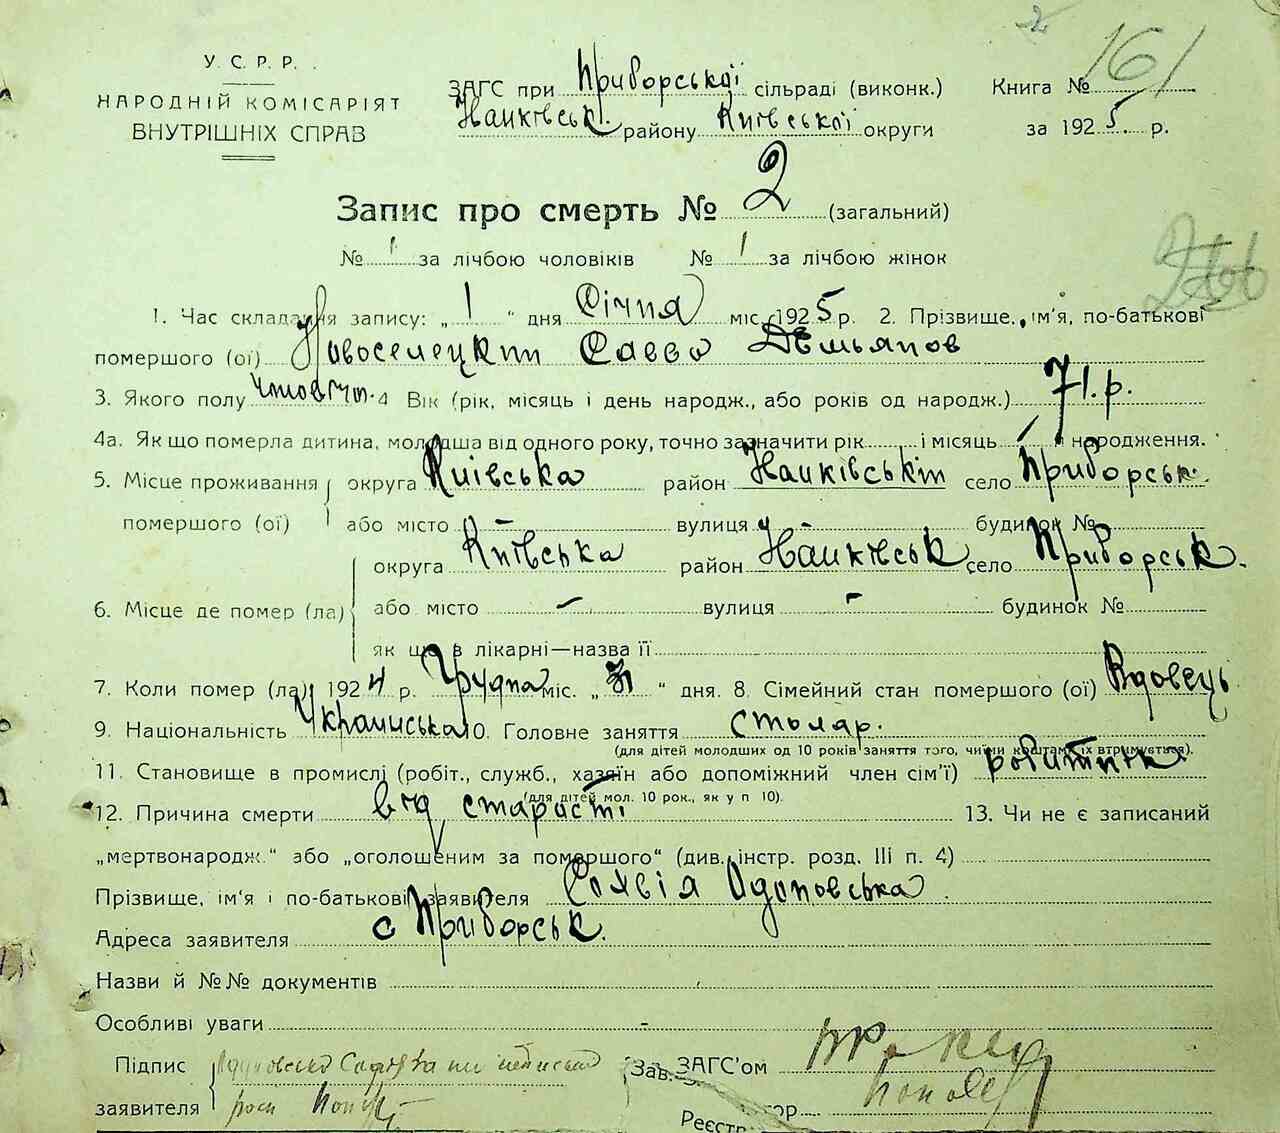 161
У. С. Р. Р.
НАРОДНІЙ КОМІСАРІЯТ
ВНУТРІШНІХ СПРАВ
ЗАГС при Приборській сільраді (виконк.) Книга №
району Київської округи за 1925 р.
Запис про смерть № 2 (загальний)
№ 1 за лічбою чоловіків № 1 за лічбою жінок
1. Час складання запису: „ 1 “ дня Січня міс. 1925 р. 2. Прізвище, ім'я, по-батькові
помершого (ої) Новоселецкий Савва Демьянов
3. Якого полу Вік (рік, місяць і день народж., або років од народж.) 71.р.
4а. Як що померла дитина, молодша від одного року, точно зазначити рік і місяць її народження.
5. Місце проживання округа Київська район село Приборськ.
помершого (ої) або місто – вулиця – будинок №
округа Київська район село Приборськ.
6. Місце де помер (ла) або місто – вулиця – будинок №
як що в лікарні—назва її
7. Коли помер (ла) 1924 р. Грудня міс. „ “ дня. 8. Сімейний стан помершого (ої) Вдовець
9. Національність Украинська 10. Головне заняття столяр.
(для дітей молодших од 10 років заняття того, чиїми коштами їх втримується).
11. Становище в промислі (робіт., служб., хазяїн або допоміжний член сім'ї) робитник
(для дітей мол. 10 рок., як у п 10).
12. Причина смерти від старості 13. Чи не є записаний
„мертвонародж.“ або „оголошеним за помершого“ (див. інстр. розд. III п. 4)
Прізвище, ім'я і по-батькові заявителя Софія
Адреса заявителя с Приборськ.
Назви й №№ документів
Особливі уваги -
Підпис
заявителя
Зав. ЗАГС'ом
Реєстр